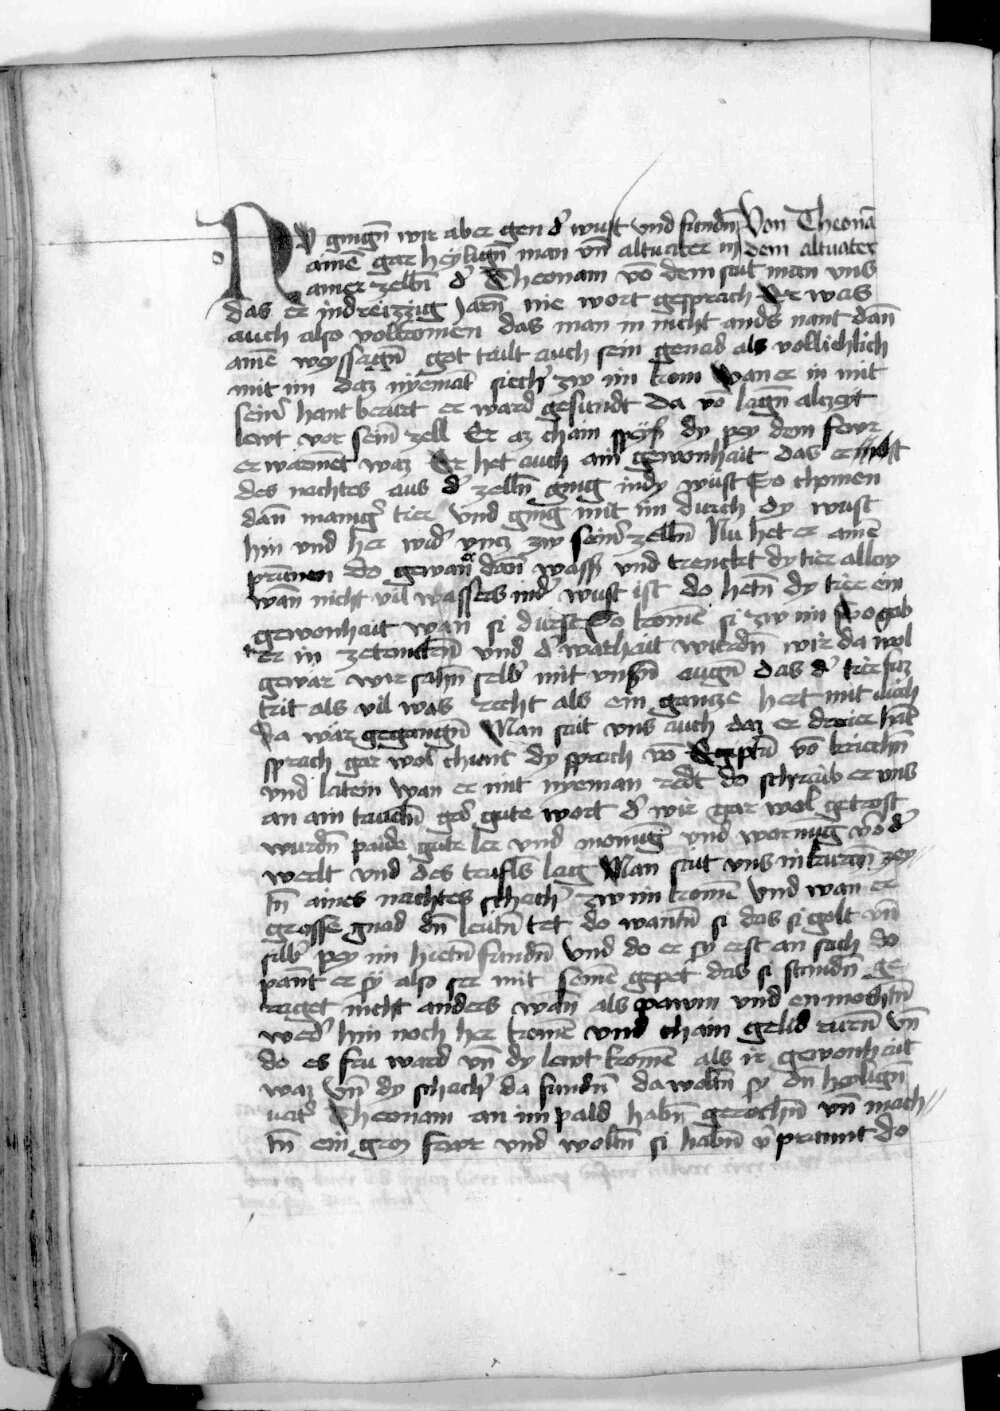 Nv gingn̄ wir aber gen d' wust vnd fundn̄ Von Theonā
ainē gar heylign̄ man vn̄ altuater in dem altuater
ainer zelln̄ d' Theonam vō dem sait man vns
das er in dreizzig Jarn̄ nie wort gesprach Er was
auch also volkomen das man in nicht anders nant dan̄
ainē weyssagn̄ got tailt auch sein genad als vollichlich
mit im daz nyemāt siech' zw im kom wan er in mit
sein' hant berurt er ward gesundt Da vō lagn̄ alczeyt
lewt vor sein̄ zell Er az chain speis dy pey dem fewr
erwarmēt waz Er het auch ain gewonhait das er
des nachtes aus d' zelln̄ ging in dy wust So chomen
dan̄ manig' tier vnd ging mit im durch dy wust
hin vnd her wid' vncz zw sein' zelln̄ Nu het er ainē
prunnen do gewan̄ er dan̄ wass' vnd trenckt dy tier allew
wan̄ nicht vil wassers in d' wust ist do hetn̄ dy tier ein
gewonhait wan̄ si durst So komē si zw im So gab
er in zetrinckn̄ vnd d' warhait wurdn̄ wir da wol
gewar wir sahn̄ selb' mit vnsn̄ augn̄ das d' tier fuz
trit als vil was recht als ein gancze hert mit vich
Da wär gegangn̄ Man sait vns auch daz er dreier hāt
sprach gar wol chunt dy sprach vō Egiptn̄ vō kriechn̄
vnd latein wan er mit nyeman redt do schraib er vns
an ain taueln̄ gar gute wort d' wir gar wol getrost
wurdn̄ paide gute ler vnd monūg vnd warnūg vō d'
werlt vnd des teufls lag Man sait vns in kurczn̄ zey
tn̄ aines nachtes schach' zw im komē Vnd wan er
grosse gnad dn̄ leutn̄ tet do wantn̄ si das si golt vn̄
silb' pey im hietn̄ fundn̄ Vnd do er sy erst an sach do
pant er sy also ser mit seinē gepet das si stundn̄ ge
reget nicht anders wan̄ als pawm vnd en mochtn̄
wed' hin noch her komē vnd chain gelid rurn̄ vn̄
do es fru ward vn̄ dy lewt komē als ir gewonhait
waz vn̄ dy schach' da fundn̄ da woltn̄ sy dn̄ heylign̄
vat' Theonam an im pald habn̄ gerochn̄ vn̄ mach
tn̄ ein groz fewr vnd woltn̄ si habn̄ v'prannt do